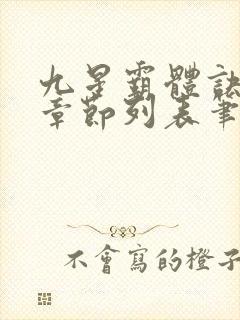 九星霸體訣
章節列表筆
不會寫的橙子